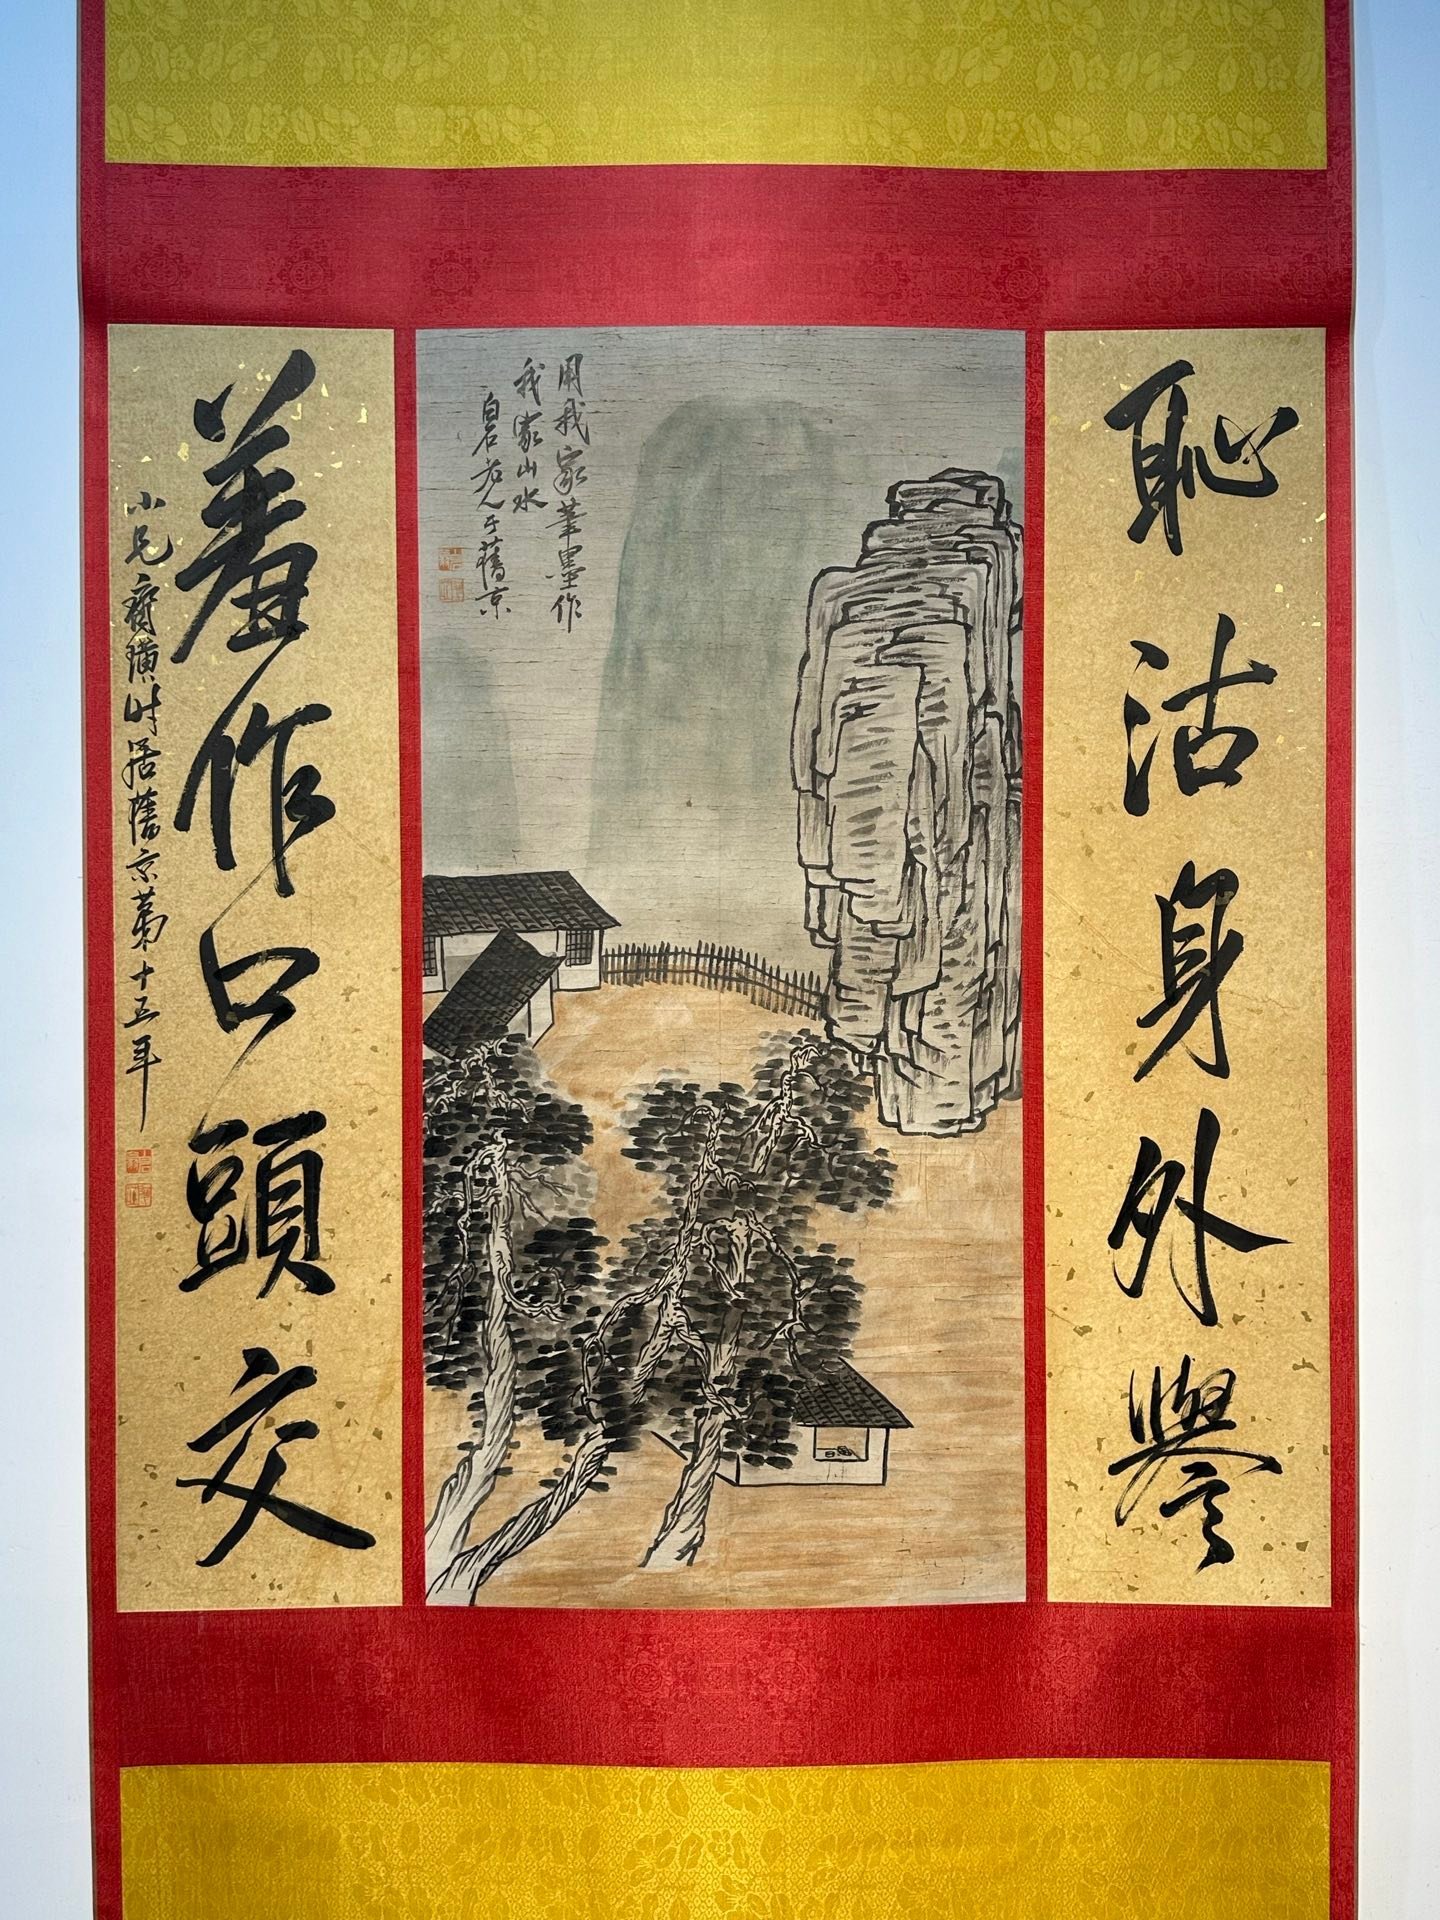 恥沽身外譽
用我家筆墨作
我家山水
白石老人于舊京
羞作口頭交
小兄齊璜時居舊京第十五年